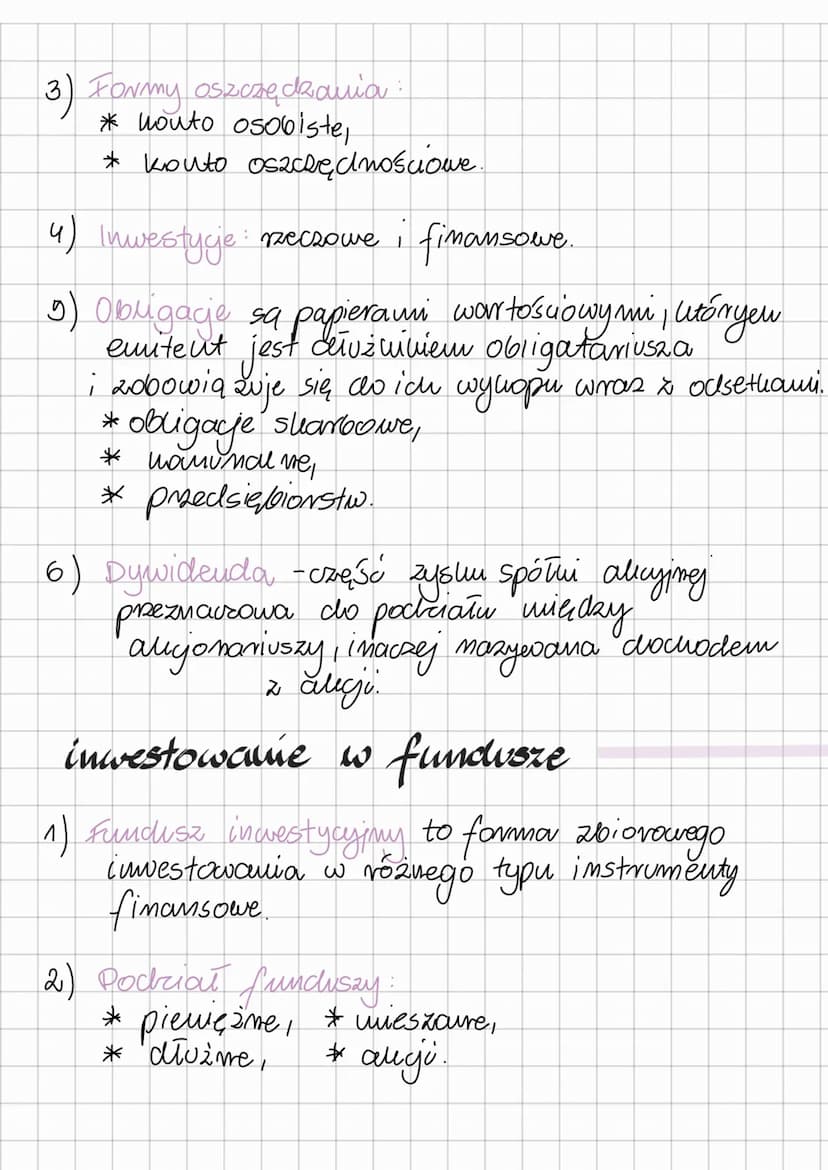 3) Formy oszczędzania:
* konto osobiste,
* konto oszczędnościowe.
4) Inwestycje: rzeczowe i finansowe.
5) Obligacje są papierami wartościowymi, których
emitent jest dłużnikiem obligatariusza
i zobowiązuje się do ich wykupu wraz z odsetkami.
* obligacje skarbowe,
* komunalne,
* przedsiębiorstw.
6) Dywidenda - część zysku spółki akcyjnej
przeznaczona do podziału między
akcjonariuszy, inaczej nazywana dochodem
z akcji.
inwestowanie w fundusze
1) Fundusz inwestycyjny to forma zbiorowego
inwestowania w różnego typu instrumenty
finansowe.
2) Podział funduszy:
* pieniężne, * mieszane,
* dłużne, * akcji.